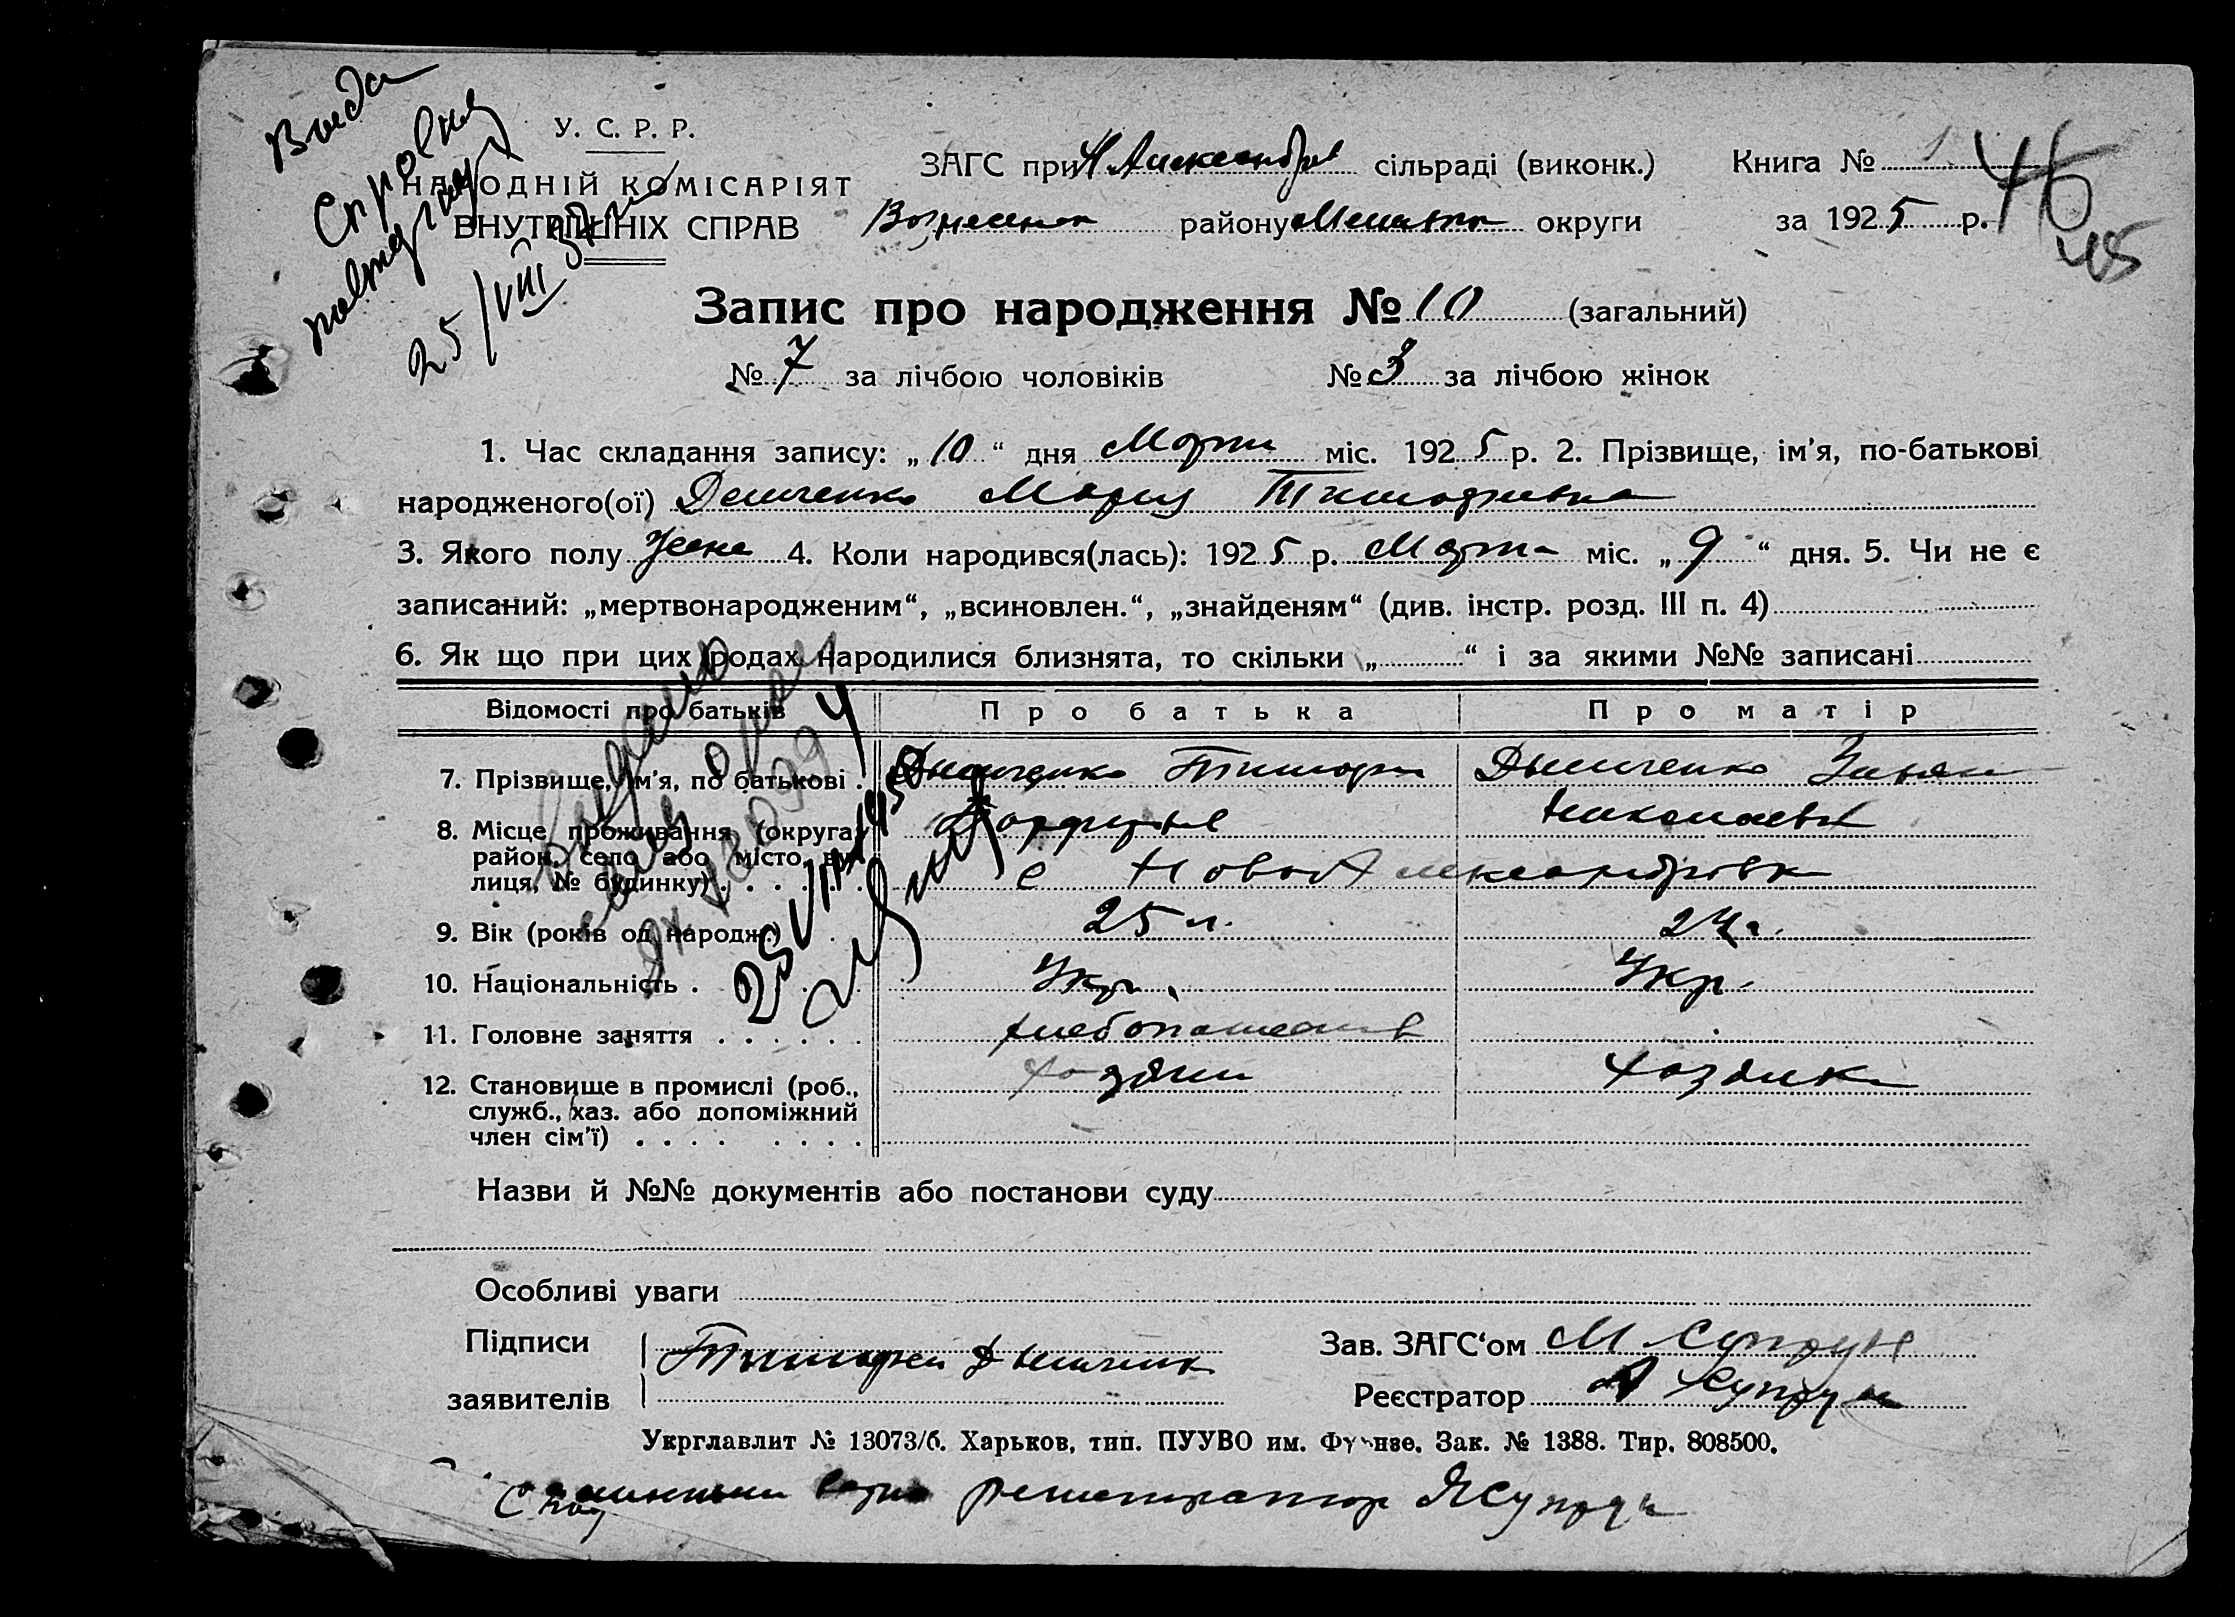 Выда
Справка
25/VIII
У. С. Р. Р.
НАРОДНІЙ КОМІСАРІЯТ
ВНУТРІШНІХ СПРАВ
ЗАГС при Н Александров сільраді (виконк.)
района Мелит округи
Книга № 1
за 1925 р.
46
45
Запис про народження № 10 (загальний)
№ 7 за лічбою чоловіків № 3 за лічбою жінок
1. Час складання запису: „10“ дня Марта міс. 1925 р. 2. Прізвище, ім’я, по-батькові
народженого(ої) Демченко Мария Тимофеевна
3. Якого полу Жене 4. Коли народився(лась): 1925 р. Марта міс. „9“ дня. 5. Чи не є
записаний: „мертвонародженим“, „всиновлен.“, „знайденям“ (див. інстр. розд. III п. 4)
6. Як що при цих родах народилися близнята, то скільки „ “ і за якими №№ записані
Відомості про батьків Про батька Про матір
7. Прізвище, ім’я, по батькові Дымченко Тимофей Дымченко
Николаевн
8. Місце проживання (округа,
район, село або місто, ву-
лиця, № будинку) с НовоАлександровка
9. Вік (років од народж.) 25 л. 24 г.
10. Національність Укр. Укр.
11. Головне заняття хлебопашество
12. Становище в промислі (роб., хозяин хозяйка
служб., хаз. або допоміжний
член сім’ї)
Назви й №№ документів або постанови суду
Особливі уваги
Підписи Тимофей Дымченк Зав. ЗАГС‘ом М Супрун
заявителів Реєстратор Супрун
Укрглавлит № 13073/б. Харьков, тип. ПУУВО им. Фрунзе. Зак. № 1388. Тир. 808500.
С подлинным верно регистратор ЯСупрун